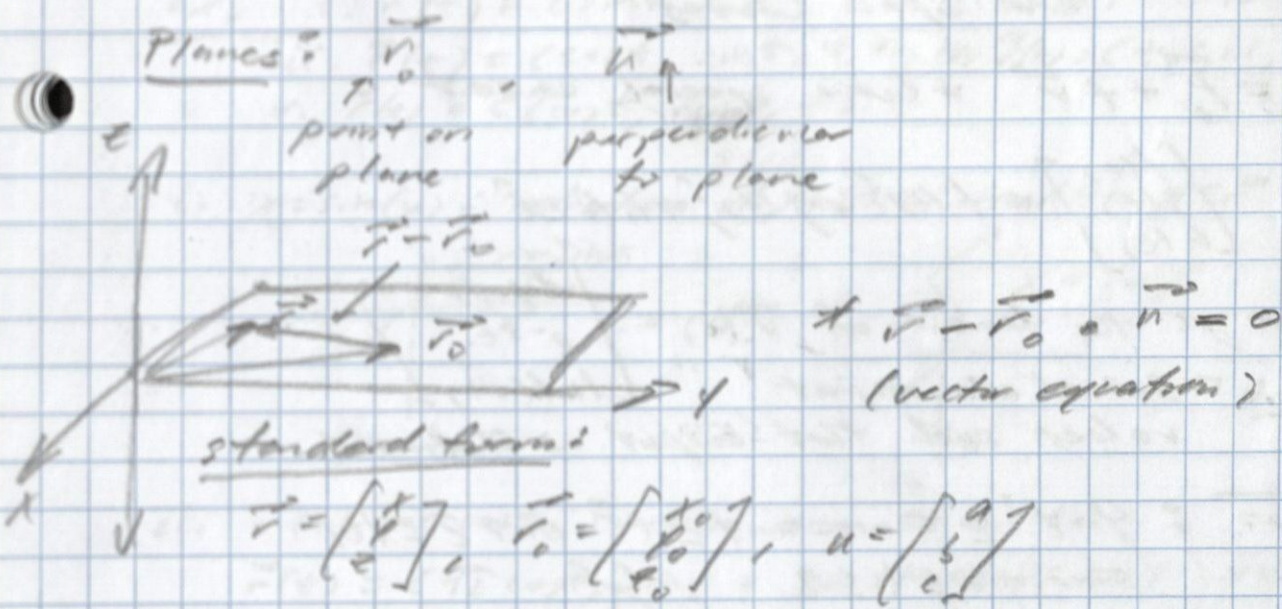 Planes: r₀⃗ , n⃗
↑ ↑
point on perpendicular
plane to plane
z
r⃗ - r₀⃗
r⃗ r₀⃗
* r⃗ - r₀⃗ • n⃗ = 0
y (vector equation)
standard form:
x
r⃗ = [x y z], r₀⃗ = [x₀ y₀ z₀], n = [a b c]